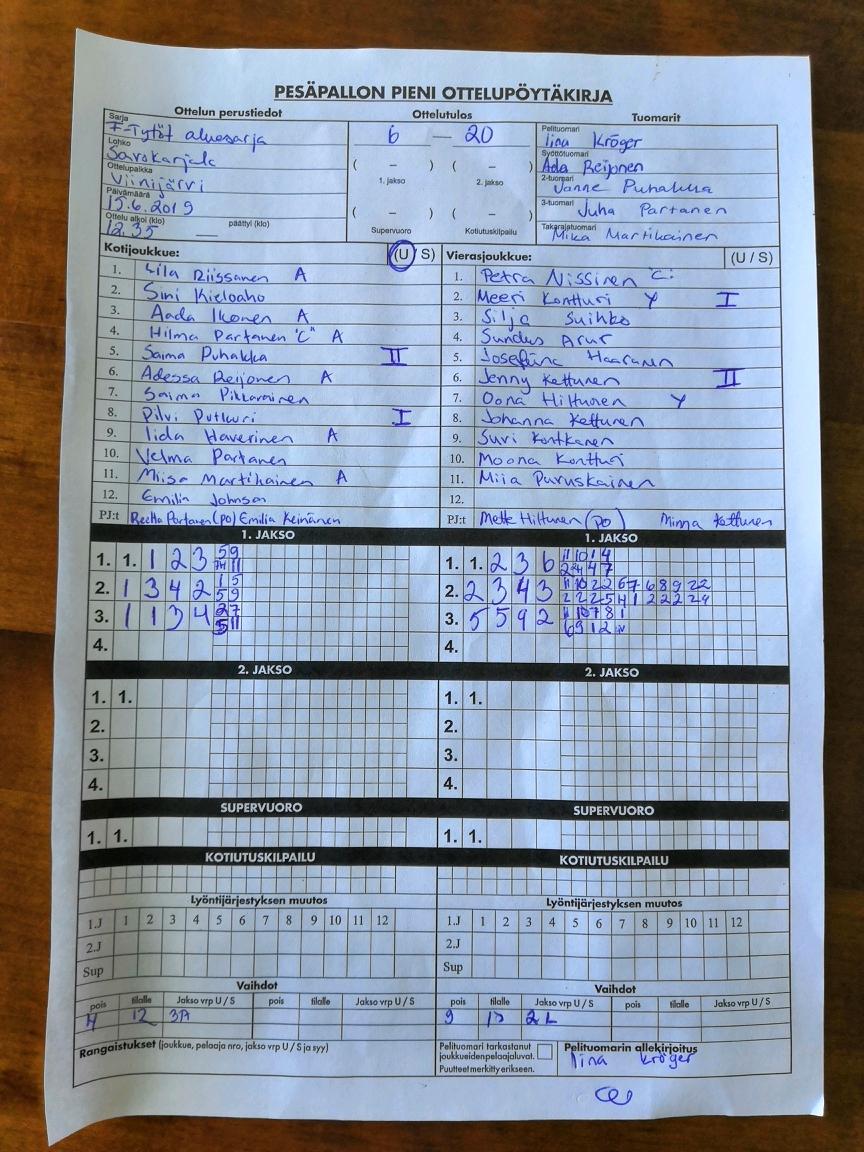 PESÄPALLON PIENI OTTELUPÖYTÄKIRJA
Ottelun perustiedot Ottelutulos Tuomarit
Sarja
F-Tytöt aluesarja
Lohko
Savokarjala
Ottelupaikka
Viinijärvi
Päivämäärä
15.6.2019
Ottelu alkoi (klo) päättyi (klo)
12.35
6 — 20
( – ) ( – )
1. jakso 2. jakso
( – ) ( – )
Supervuoro Kotiutuskilpailu
Pelituomari
Iina Kröger
Syöttötuomari
Ada Reijonen
2-tuomari
Janne Puhakka
3-tuomari
Juha Partanen
Takarajatuomari
Mika Martikainen
Kotijoukkue: (U / S)
1. Riissanen A
2. Sini Kieloaho
3. Aada Ikonen A
4. Hilma Partanen "C" A
5. Saima Puhakka II
6. Adessa Reijonen A
7. Saima Pikkarainen
8. Pilvi Putkuri I
9. Iida Haverinen A
10. Velma Partanen
11. Miisa Martikainen A
12. Emilia Johnson
PJ:t Reetta Partanen (PO) Emilia Keinänen
Vierasjoukkue: (U / S)
1. Petra Nissinen C
2. Meeri Kontturi Y I
3. Silja Suihko
4. Sundus Arur
5. Josefiina Haaranen
6. Jenny Kettunen II
7. Oona Hiltunen Y
8. Johanna Kettunen
9. Suvi Kontkanen
10. Moona Kontturi
11. Miia Puruskainen
12.
PJ:t Mette Hiltunen (PO) Minna Kettunen
1. JAKSO 1. JAKSO
1. 1. 1 2 3 59
2. 1 3 4 2 1 5 59
3. 1 1 3 4 27
4.
1. 1. 2 3 6 11 10 1 4
2. 2 3 4 3
3. 5 5 9 2
4.
2. JAKSO 2. JAKSO
1. 1. 1. 1.
2. 2.
3. 3.
4. 4.
SUPERVUORO SUPERVUORO
1. 1. 1. 1.
KOTIUTUSKILPAILU KOTIUTUSKILPAILU
Lyöntijärjestyksen muutos Lyöntijärjestyksen muutos
1.J 1 2 3 4 5 6 7 8 9 10 11 12 1.J 1 2 3 4 5 6 7 8 9 10 11 12
2.J 2.J
Sup Sup
Vaihdot Vaihdot
pois tilalle Jakso vrp U / S pois tilalle Jakso vrp U / S pois tilalle Jakso vrp U / S pois tilalle Jakso vrp U / S
12 3A 9 2L
Rangaistukset (joukkue, pelaaja nro, jakso vrp U / S ja syy)
Pelituomari tarkastanut
joukkueidenpelaajaluvat.
Puutteet merkitty erikseen.
Pelituomarin allekirjoitus
Iina Kröger